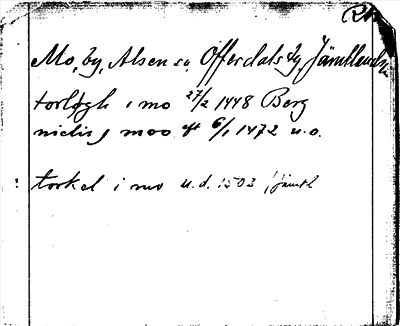 Mo, by, Alsen sn, Offerdals tg Jämtlands
torlogh i mo 27/2 1448 Berg
nielis j moo oft 6/1 1472 u.o.
torkel i mo u.d. 1503 jämtl